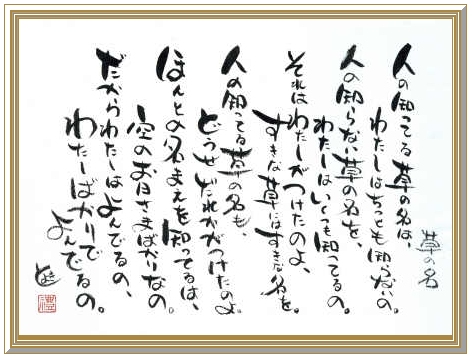 草の名
人の知ってる草の名は、
わたしはちっとも知らないの。
人の知らない草の名を、
わたしはいくつも知ってるの。
それはわたしがつけたのよ、
すきな草にはすきな名を。
人の知ってる草の名も、
どうせだれかがつけたのよ。
ほんとの名まえを知ってるは、
空のお日さまばかりなの。
だからわたしはよんでるの、
わたしばかりで
よんでるの。